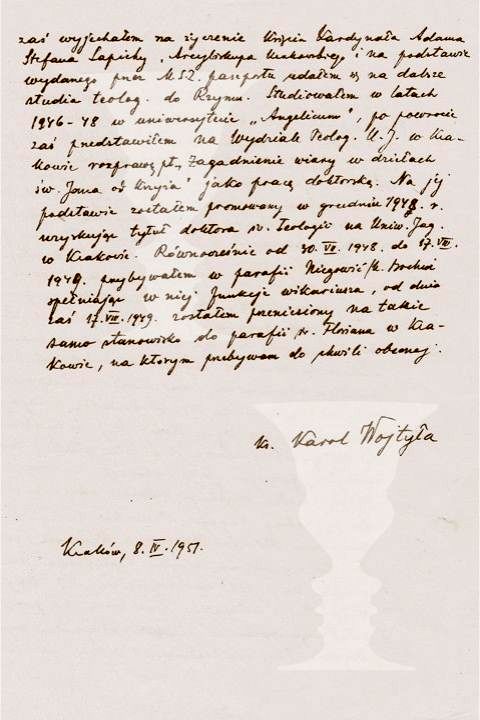 zaś wyjechałem na życzenie Księcia Kardynała Adama
Stefana Sapiehy, Arcybiskupa Krakowskiego, i na podstawie
wydanego przez M.S.Z. paszportu udałem się na dalsze
studia teolog. do Rzymu. Studiowałem w latach
1946-48 w uniwersytecie „Angelicum”, po powrocie
zaś przedstawiłem na Wydziale Teolog. U.J. w Kra-
kowie rozprawę pt. „Zagadnienie wiary w dziełach
św. Jana od Krzyża” jako pracę doktorską. Na jej
podstawie zostałem promowany w grudniu 1948 r.
uzyskując tytuł doktora św. Teologii na Uniw. Jag.
w Krakowie. Równocześnie od 30. VII. 1948. do 17. VIII.
1949. przebywałem w parafii Niegowić /k. Bochni
spełniając w niej funkcje wikariusza, od dnia
zaś 17. VIII. 1949. zostałem przeniesiony na takie
samo stanowisko do parafii św. Floriana w Kra-
kowie, na którym przebywam do chwili obecnej.
ks. Karol Wojtyła
Kraków, 8. IV. 1951.